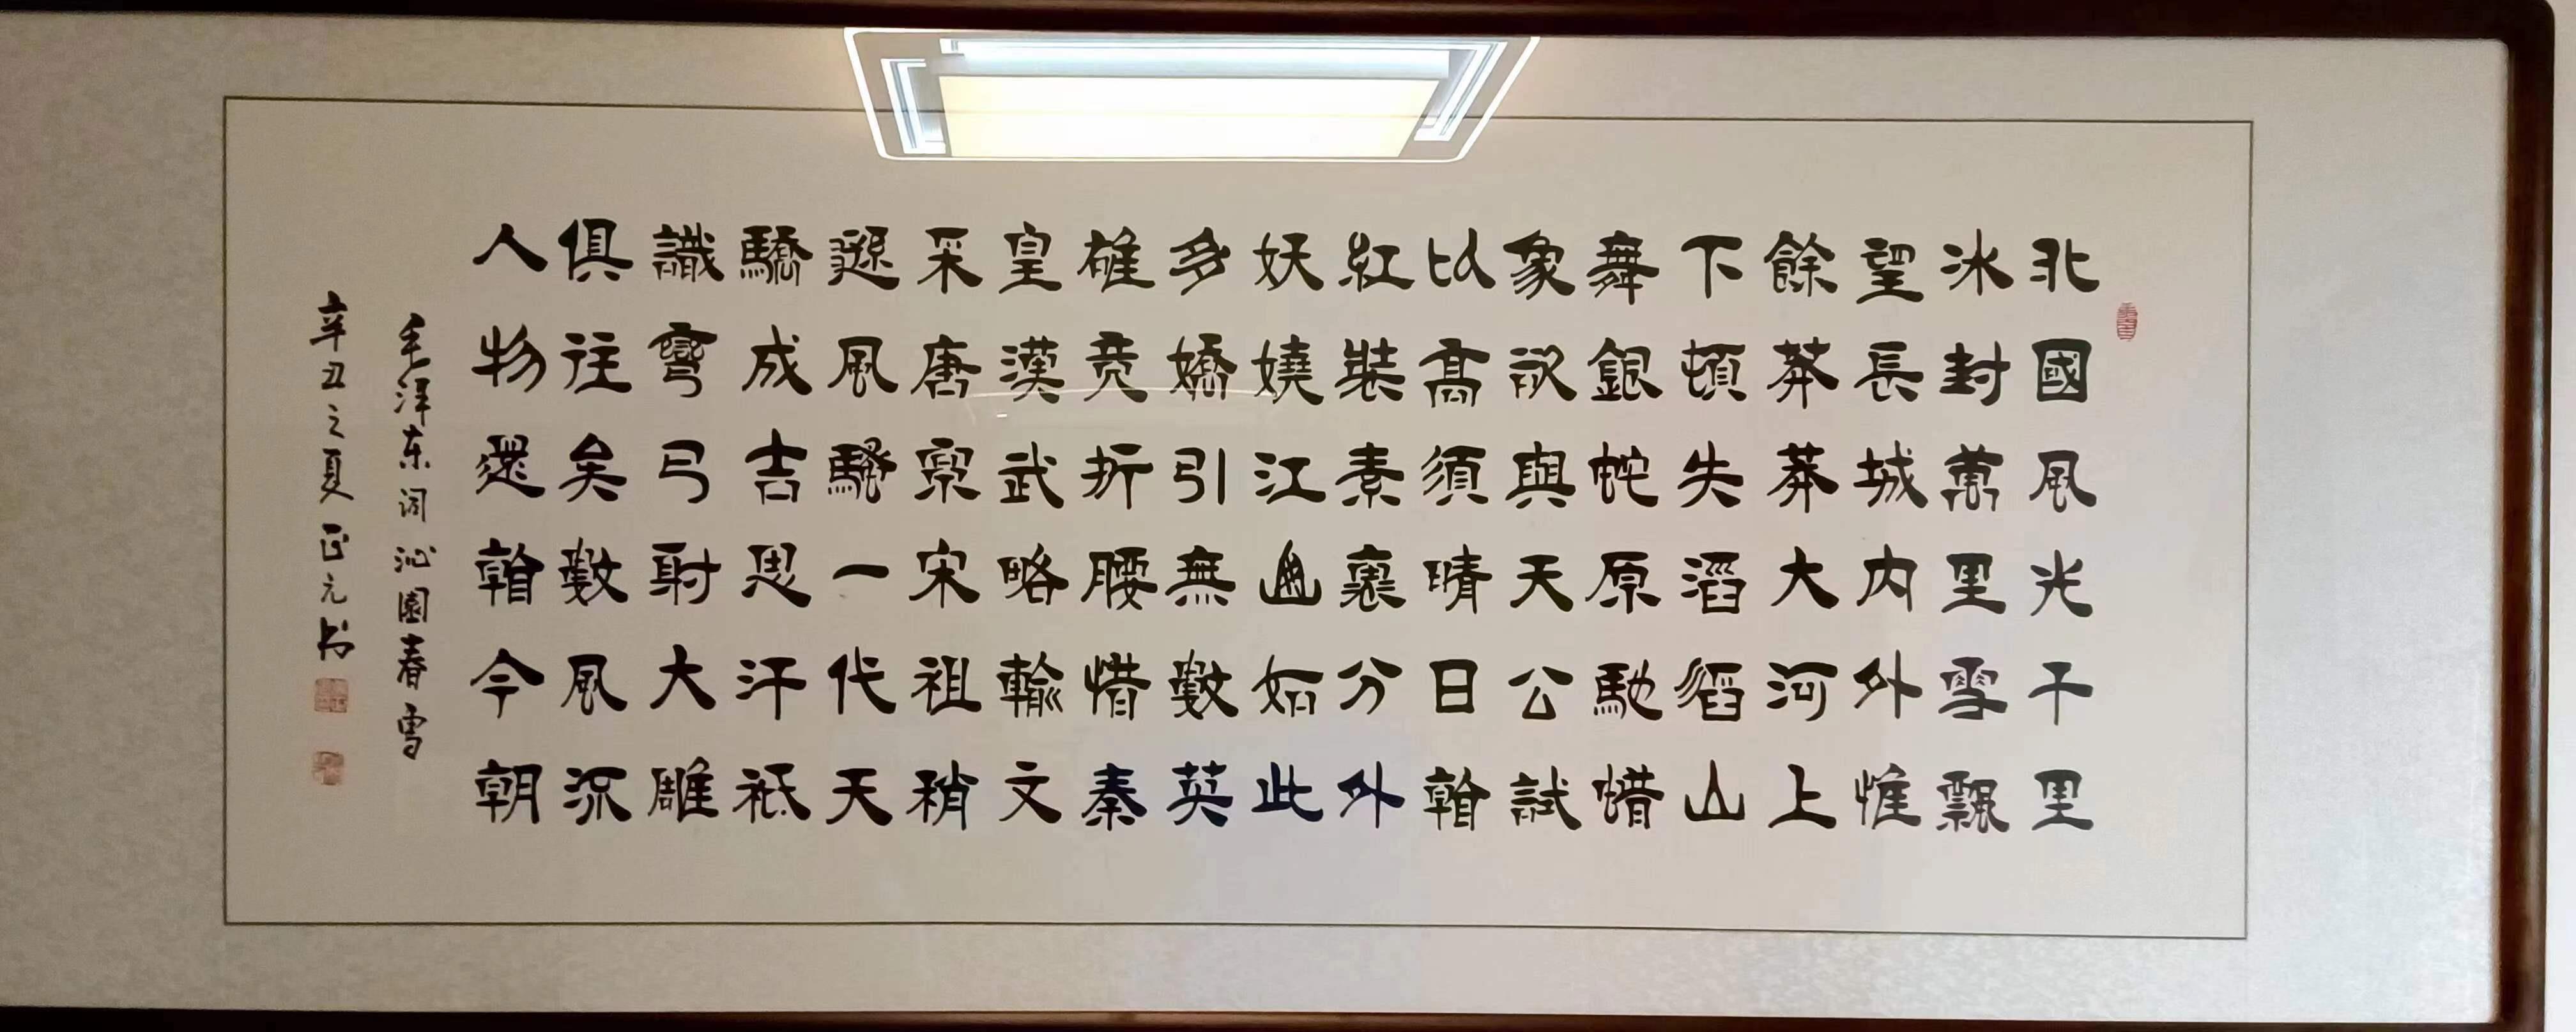 北國風光千里
冰封萬里雪飄
望長城內外惟
餘莽莽大河上
下頓失滔滔山
舞銀蛇原馳蜡
象欲與天公試
比高須晴日看
紅裝素裹分外
妖嬈江山如此
多嬌引無數英
雄竞折腰惜秦
皇漢武略輸文
采唐宗宋祖稍
遜風騷一代天
驕成吉思汗祇
識彎弓射大雕
俱往矣數風流
人物還看今朝
毛泽东词沁園春雪
辛丑之夏正元书